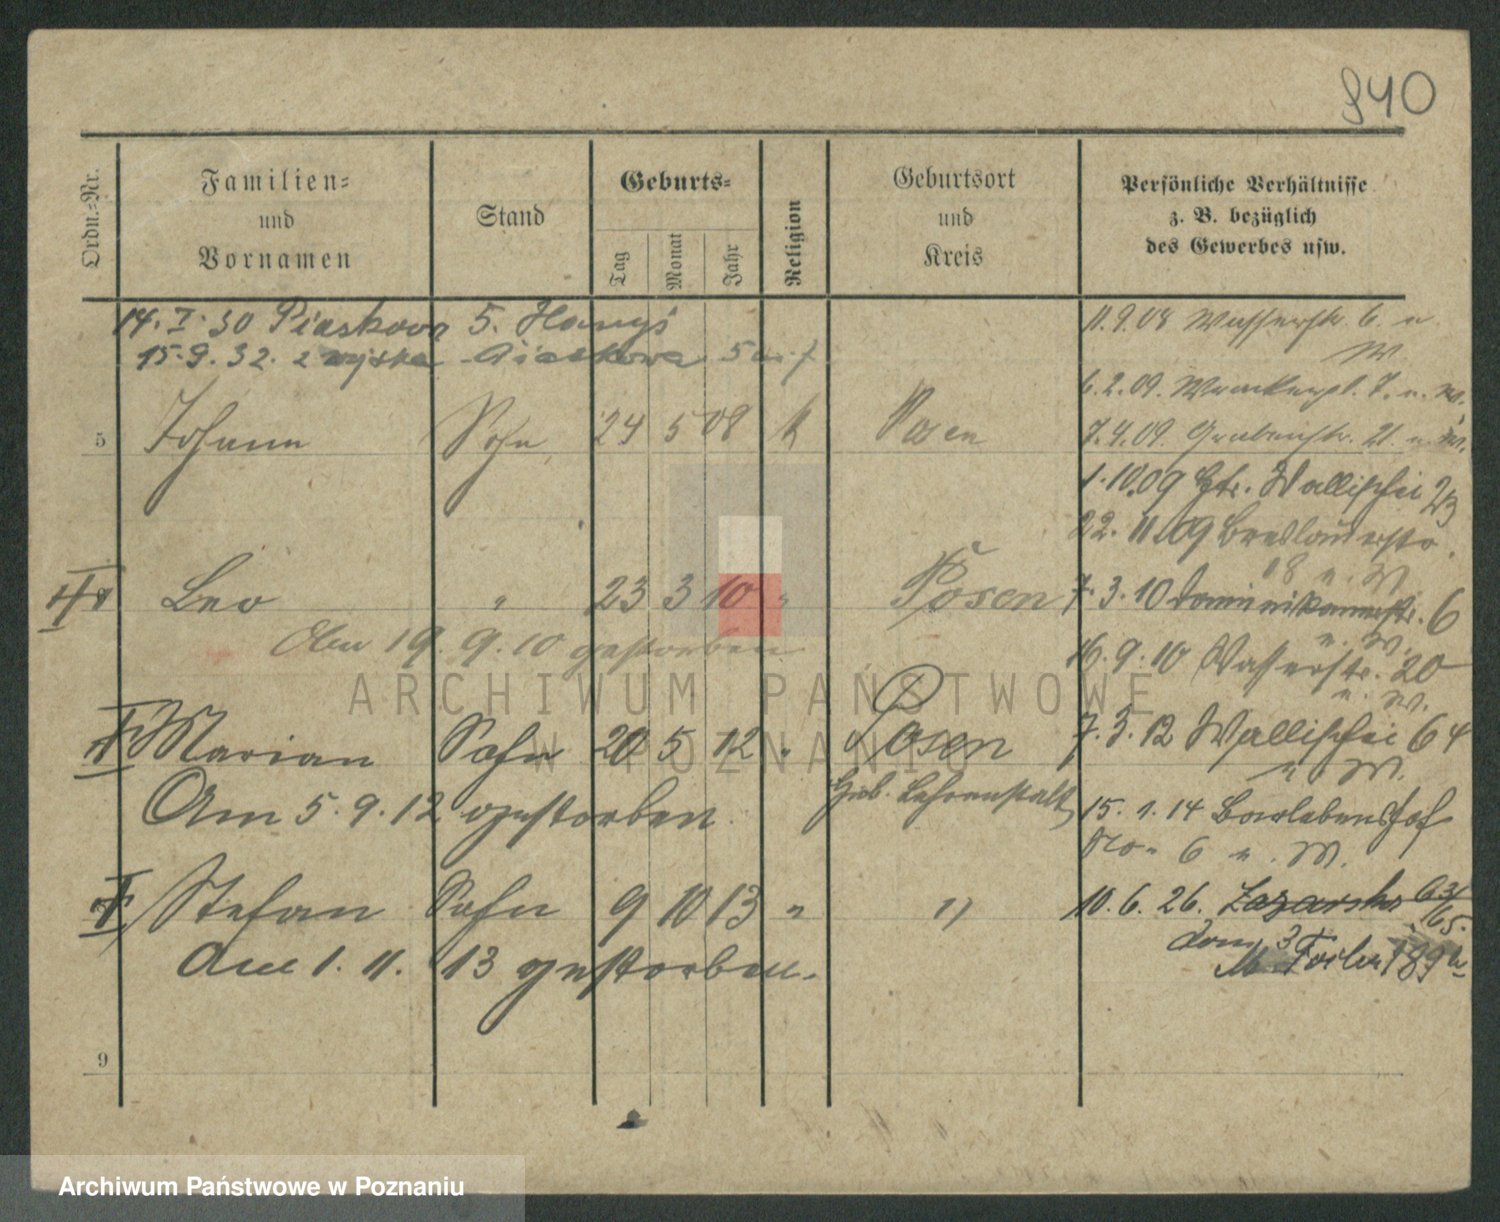 940
Ordn.-Nr.
Familien-
und
Vornamen
Stand
Geburts-
Tag
Monat
Jahr
Religion
Geburtsort
und
Kreis
Persönliche Verhältnisse
z. B. bezüglich
des Gewerbes usw.
14. I. 30 Piaskowa 5.
15. 9. 32. z Piaskowa 5
11.9.08 Wasserstr. 6. u.
W.
6.2.09. 7. u. W.
5 Johann Sohn 24 5 08 k Posen
7.4.09. Grabenstr. 21. u. W.
1.10.09 Wallischei 23
22. 11.09 Breslauerstr.
18 u. W.
Leo " 23 3 10 " Posen
7. 3. 10 Dominikanerstr. 6
u. W.
Am 19. 9. 10 gestorben
16. 9. 10 Wasserstr. 20
u. W.
Marian Sohn 20 5 12 " Posen
7. 3. 12 Wallischei 64
u. W.
Am 5. 9. 12 gestorben
Heb. Lehranstalt
15. 1. 14 Barlebenshof
No. 6 u. W.
Stefan Sohn 9 10 13 " "
10. 6. 26.
Am 1. 11. 13 gestorben.
9
ARCHIWUM PAŃSTWOWE
W POZNANIU
Archiwum Państwowe w Poznaniu